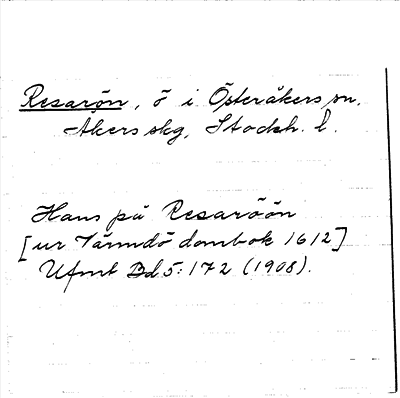 Resarön, ö i Österåkers sn.
Åkers skg, Stockh. l.
Hans på Resaröön
[ur Värmdö dombok 1612]
Ufmt Bd 5: 172 (1908).